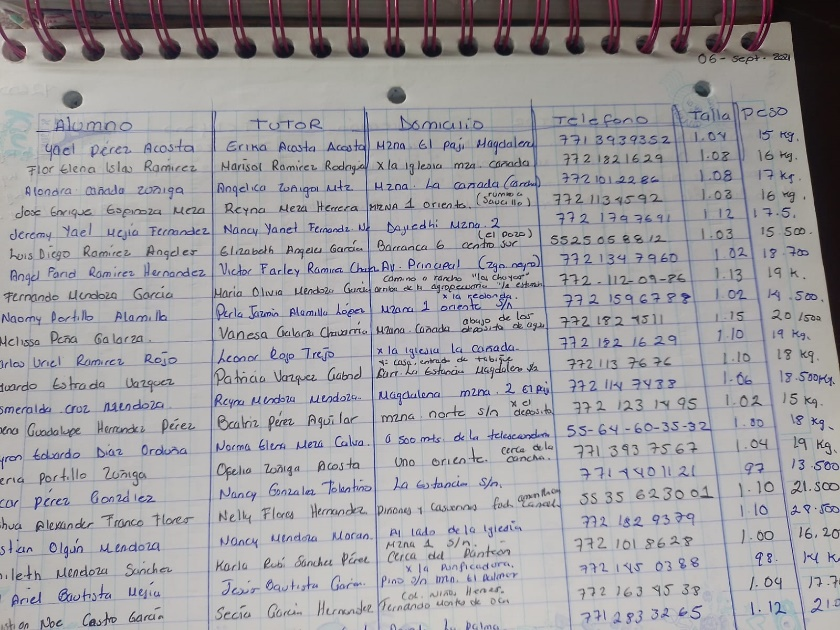 06-sept. 2021
Alumno TUTOR Domicilio Telefono Talla peso
Yael Pérez Acosta Erika Acosta Acosta Mzna 61 Paji Magdalena 771 3939352 1.04 15 Kg.
Flor Elena Islas Ramirez Marisol Ramirez Rodrigu x la Iglesia mza. cañada 772 1821629 1.08 16 Kg.
Alondra cañada zuñiga Angelica zuñiga Mtz Mzna. La cañada 772 1012286 1.08 17 Kg.
Jose Enrique Espinoza Meza Reyna Meza Herrera MZNA 1 oriente. (rumbo a Saucillo) 772 1134592 1.03 16 kg.
Jeremy Yael Mejia Fernandez Nancy Yanet Fernandez Dajiedhi Mzna. 2 (el pozo) 772 1797691 1.12 17.5.
Luis Diego Ramirez Angeles Elizabeth Angeles García Barranca 6 centro sur 5525058812 1.03 15 500.
Angel Farid Ramirez Hernandez Victor Farley Ramirez Av. Principal 772 1347960 1.02 18.700
Fernando Mendoza García Maria Olivia Mendoza García camino a rancho "los choyos" 772-112-09-86 1.13 19 K.
Naomy Portillo Alamillo Perla Jazmin Alamillo López Mzana 1 oriente s/n x la redonda. 772 1596788 1.02 14.500.
Melissa Peña Galarza. Vanesa Galarza Chavarria Mzana. Cañada abajo de los deposito de agua 772 182 4511 1.15 20 1500
arlos Uriel Ramirez Rojo Leonor Rojo Trejo x la Iglesia la cañada. 772 182 1629 1.10 19 Kg.
duardo Estrada Vazquez Patricia Vazquez Barr. La Estancia Magdalena 772 113 7676 1.10 18 kg.
smeralda cruz Mendoza. Reyna Mendoza Mendoza. Magdalena mzna. 2 772 114 7438 1.06 18.500Kg
Guadalupe Hernandez Pérez Beatriz Pérez Aguilar mzna norte s/n x el deposito 772 123 1495 1.02 15 kg.
yron Eduardo Diaz Orduña Norma Elena Meza Calva. a 500 mts. de la telesecundaria 55-64-60-35-32 1.00 18 kg.
eria Portillo Zuñiga Ofelia Zuñiga Acosta uno oriente. cerca de la cancha. 771 393 7567 1.04 19 Kg.
car Pérez González Nancy Gonzalez Tolentino La Estancia s/n. 771 4401121 97 13.500
hua Alexander Franco Flores Nelly Flores Hernandez 55 35 623001 1.10 21.500
stian Olguín Mendoza Nancy Mendoza Moran. Al lado de la Iglesia Mzna 1 s/n. 772 182 9379 1.10 28.500
ileth Mendoza Sánchez Karla Rubí Sánchez Pérez Cerca del Panteón x la purificadora. 772 101 8628 1.00 16.20
Ariel Bautista Mejía Jesús Bautista Pino s/n mna. el Palmar 772 145 0388 98. 14 K
Noe Castro García Secia García Hernandez Col. Niños Heroes. Fernando Montes de Oca 772 163 45 38 1.04 17.7
771 283 3265 1.12 21.